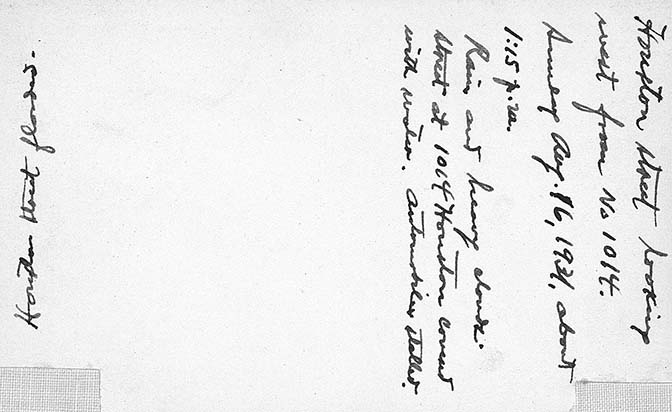 Houston Street looking
west from No 1014.
Sunday Aug. 16, 1931, about
1:15 p.m.
Rain and heavy clouds.
Street at 1014 Houston covered
with water. Automobiles stalled.
Houston Street flooded.